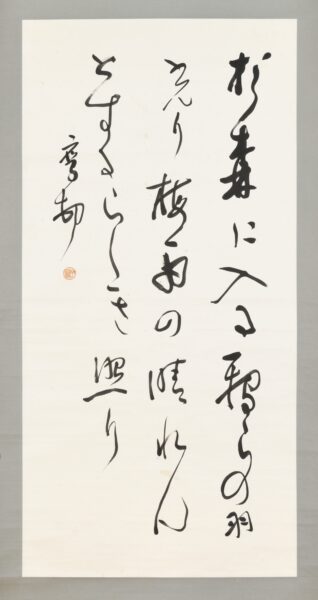 杉森に入る鴉らの羽
光り梅雨の晴れん
とするらしき照り